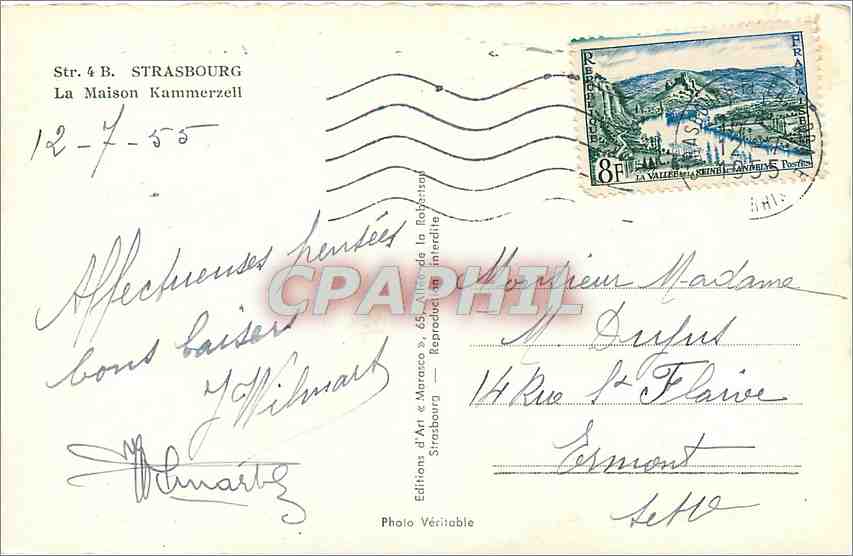 Str. 4 B. STRASBOURG
La Maison Kammerzell
12-7-55
Affectueuses pensées
bons baisers
J Wilmart
Editions d'Art « Marasco », 65, Allée de la Robertsau
Strasbourg — Reproduction interdite
Photo Véritable
REPUBLIQUE FRANÇAISE
8F
LA VALLÉE DE LA SEINE AUX ANDELYS POSTES
12
1955
RHIN
Monsieur Madame
M. Dufus
14 Rue St Flaive
Ermont
S et O
CPAPHIL